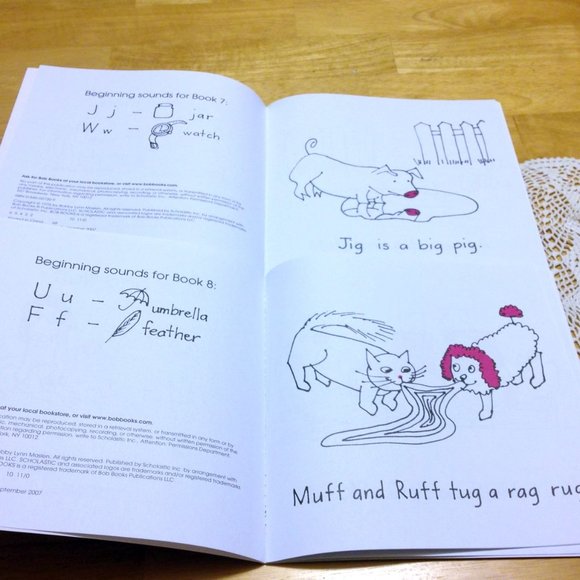 Beginning sounds for Book 7:
J j – jar
W w – watch
Ask for Bob Books at your local bookstore, or visit www.bobbooks.com.
Jig is a big pig.
Beginning sounds for Book 8:
U u – umbrella
F f – feather
at your local bookstore, or visit www.bobbooks.com.
cation may be reproduced, stored in a retrieval system, or transmitted in any form or by
nic, mechanical, photocopying, recording, or otherwise, without written permission of the
tion regarding permission, write to Scholastic Inc., Attention: Permissions Department,
ork, NY 10012.
Lynn Maslen. All rights reserved. Published by Scholastic Inc. by arrangement with
LLC. SCHOLASTIC and associated logos are trademarks and/or registered trademarks
BOOKS is a registered trademark of Bob Books Publications LLC.
10 11/0
eptember 2007
Muff and Ruff tug a rag rug